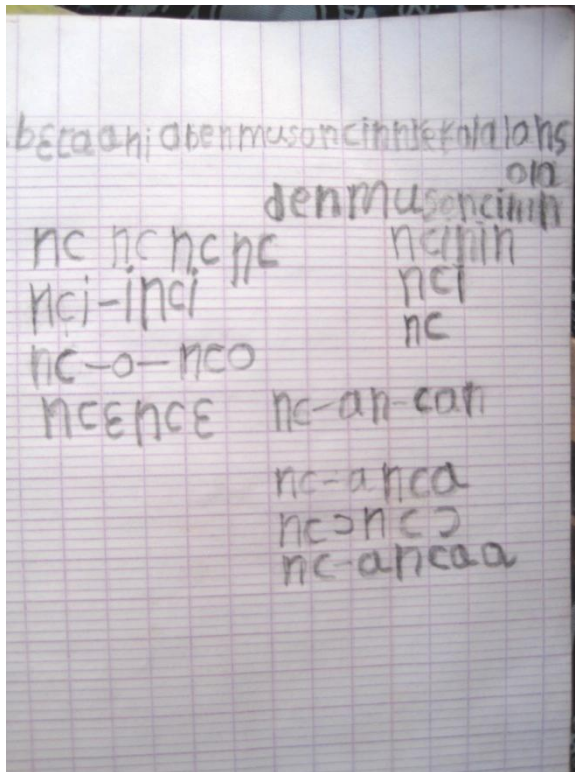 bɛcaaniabenmusoncinnjɛrolalahs
ola
denmusoncinin
nc nc nc nc
ncinin
nci-inci
nci
nc
nc-o-nco
ncɛncɛ
nc-an-can
nc-anca
ncɔncɔ
nc-ancaa